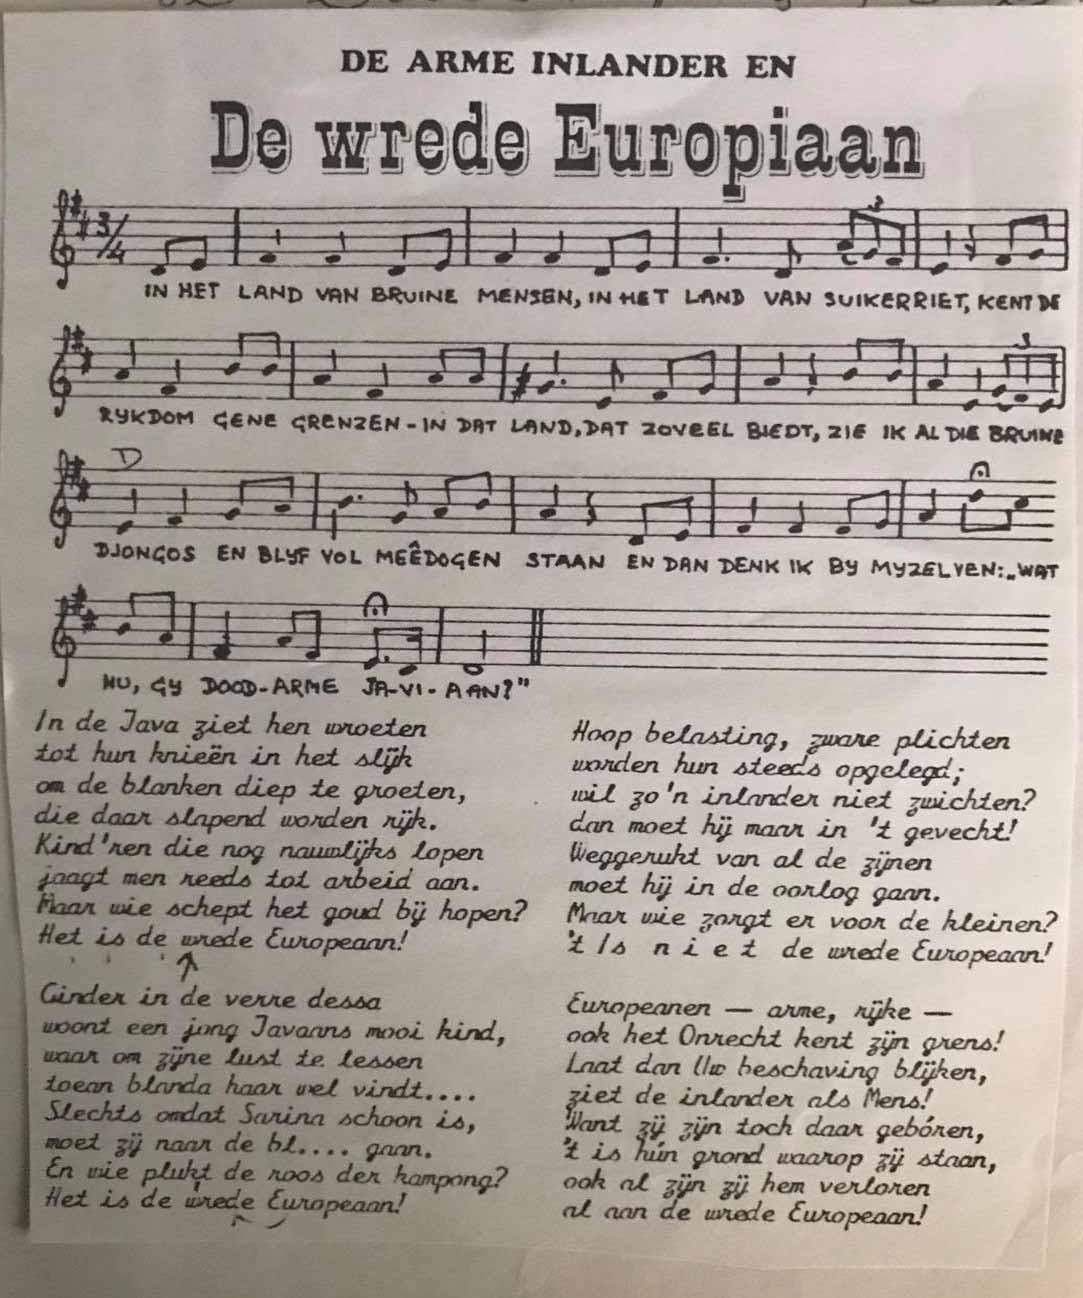 DE ARME INLANDER EN
De wrede Europiaan
3/4
3
IN HET LAND VAN BRUINE MENSEN, IN HET LAND VAN SUIKERRIET, KENT DE
3
RYKDOM GENE GRENZEN - IN DAT LAND, DAT ZOVEEL BIEDT, ZIE IK AL DIE BRUINE
D
DJONGOS EN BLYF VOL MEÊDOGEN STAAN EN DAN DENK IK BY MYZELVEN: „WAT
NU, GY DOOD-ARME JA-VI-AAN?"
In de Java ziet hen wroeten
tot hun knieën in het slijk
om de blanken diep te groeten,
die daar slapend worden rijk.
Kind'ren die nog nauwlijks lopen
jaagt men reeds tot arbeid aan.
Maar wie schept het goud bij hopen?
Het is de wrede Europeaan!
Ginder in de verre dessa
woont een jong Javaans mooi kind,
waar om zijne lust te lessen
toean blanda haar wel vindt....
Slechts omdat Sarina schoon is,
moet zij naar de bl.... gaan.
En wie plukt de roos der kampong?
Het is de wrede Europeaan!
Hoop belasting, zware plichten
worden hun steeds opgelegd;
wil zo'n inlander niet zwichten?
dan moet hij maar in 't gevecht!
Weggerukt van al de zijnen
moet hij in de oorlog gaan.
Maar wie zorgt er voor de kleinen?
't Is n i e t de wrede Europeaan!
Europeanen — arme, rijke —
ook het Onrecht kent zijn grens!
Laat dan Uw beschaving blijken,
ziet de inlander als Mens!
Want zij zijn toch daar gebóren,
't is hún grond waarop zij staan,
ook al zijn zij hem verloren
al aan de wrede Europeaan!